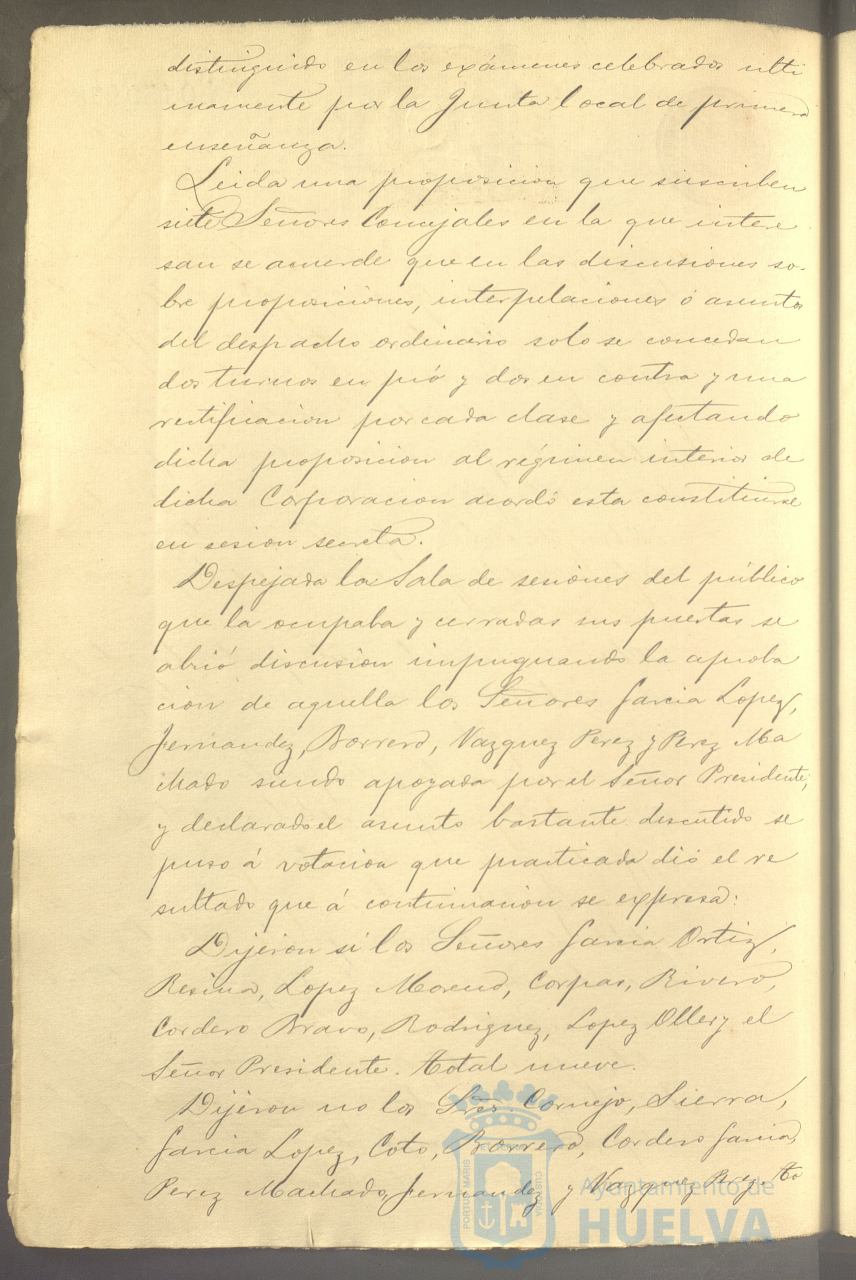 distinguido en los exámenes celebrados ulti
mamente por la Junta local de primera
enseñanza.
Leida una proposicion que suscriben
siete Señores Concejales en la que intere
san se acuerde que en las discusiones so-
bre proposiciones, interpelaciones ó asuntos
del despacho ordinario solo se concedan
dos turnos en pró y dos en contra y una
rectificacion por cada clase y afectando
dicha proposicion al régimen interior de
dicha Corporacion acordó esta constituirse
en sesion secreta.
Despejada la Sala de sesiones del público
que la ocupaba y cerradas sus puertas se
abrió discusion impugnando la aproba
cion de aquella los Señores Garcia Lopez,
Fernandez, Borrero, Vazquez Perez y Perez Ma
chado siendo apoyada por el Señor Presidente,
y declarado el asunto bastante discutido se
puso á votacion que practicada dió el re
sultado que á continuacion se expresa:
Dijeron si los Señores Garcia Ortiz,
Resina, Lopez Moreno, Corpas, Rivero,
Cordero Bravo, Rodriguez, Lopez Oller y el
Señor Presidente. Total nueve.
Dijeron no los Sres Cornejo, Sierra,
Garcia Lopez, Coto, Borrero, Cordero Garcia,
Perez Machado, Fernandez y Vazquez Perez. to
PORTUS MARIS
ET TERRAE
CUSTODIA
Ayuntamiento de
HUELVA